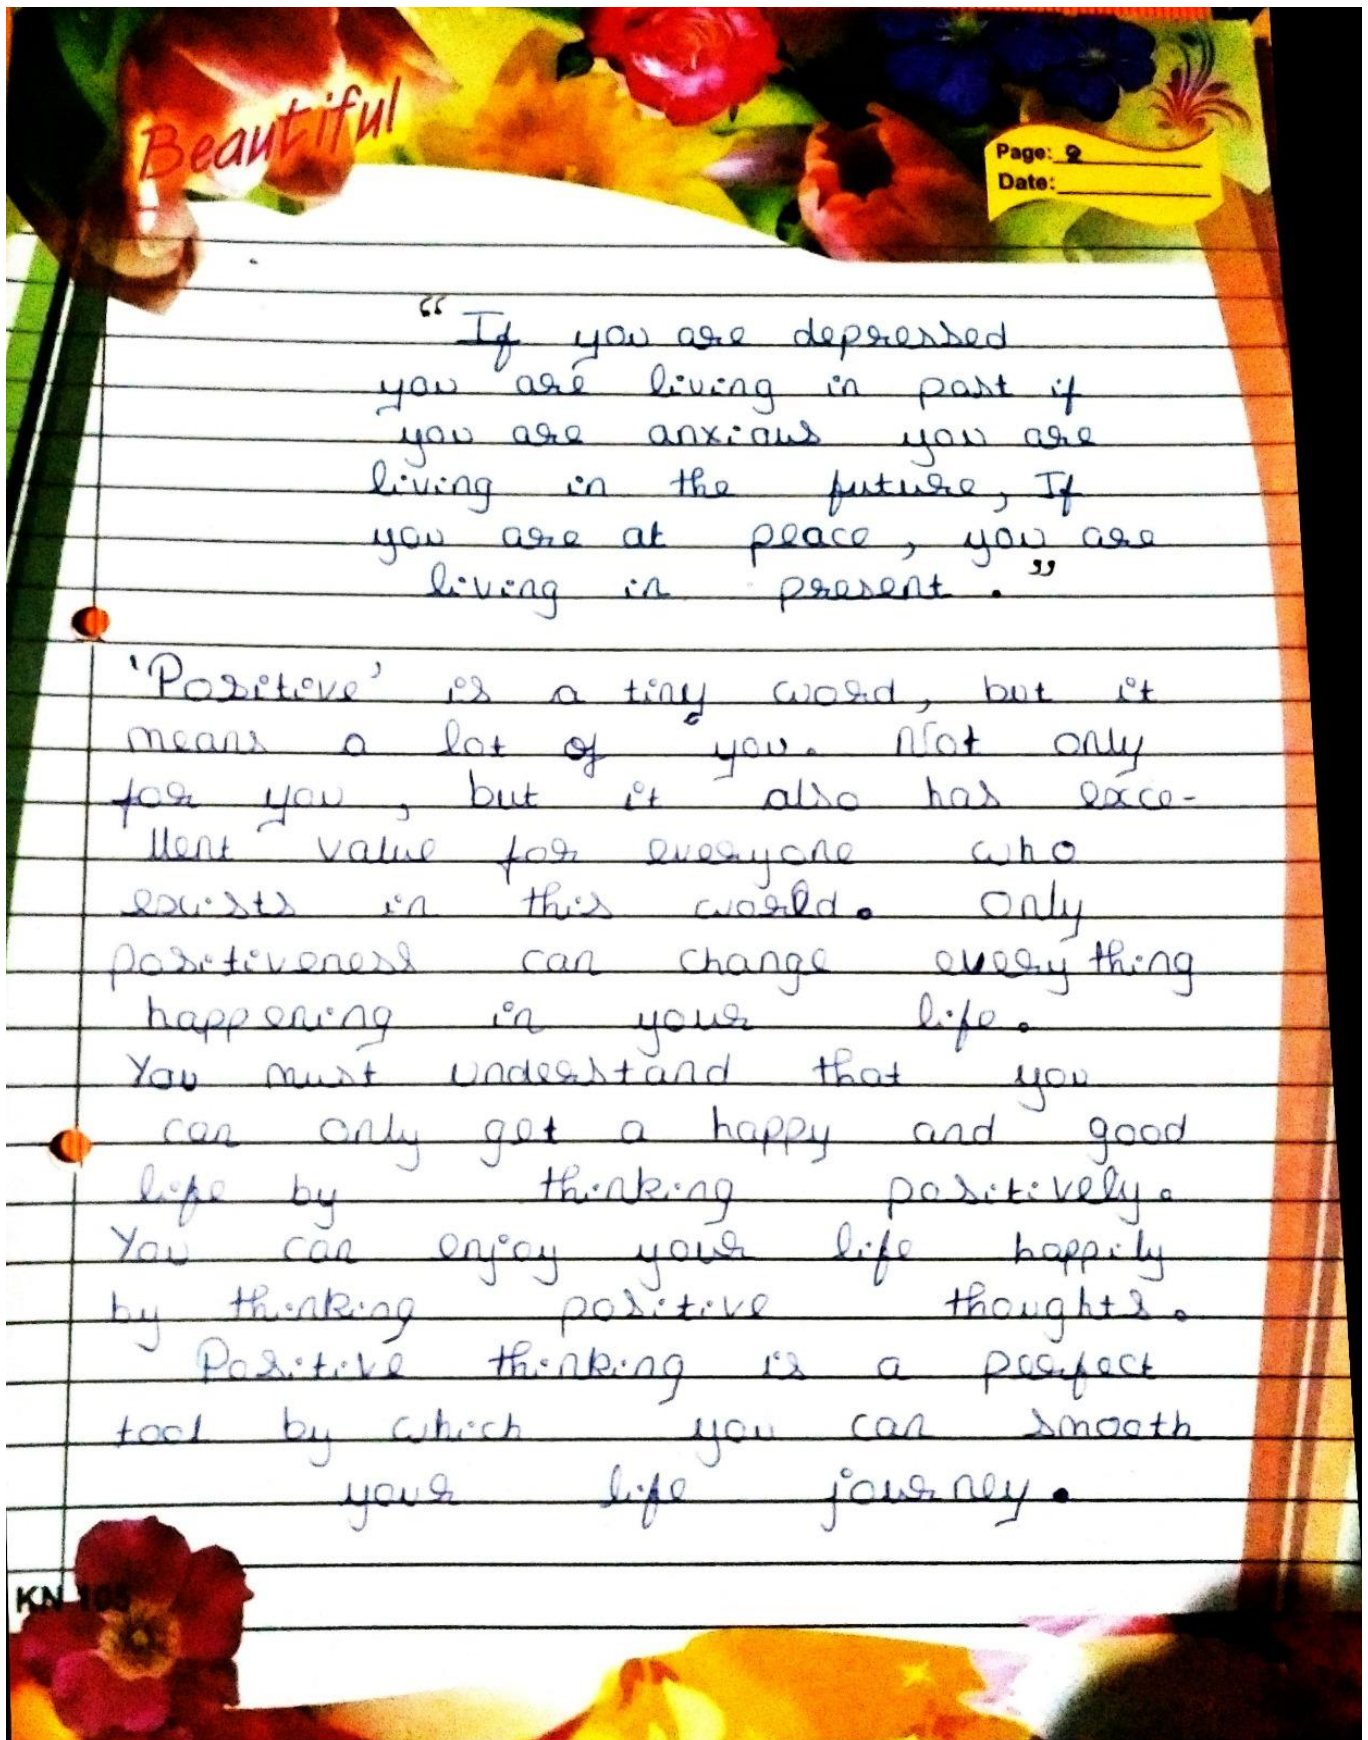 Beautiful
Page: 2
Date:
“ If you are depressed
you are living in past if
you are anxious you are
living in the future, If
you are at peace, you are
living in present . ”
'Positive' is a tiny word, but it
means a lot of you. Not only
for you, but it also has exce-
llent value for everyone who
exists in this world. Only
positiveness can change everything
happening in your life.
You must understand that you
can only get a happy and good
life by thinking positively.
You can enjoy your life happily
by thinking positive thoughts.
Positive thinking is a perfect
tool by which you can smooth
your life journey.
KN 105